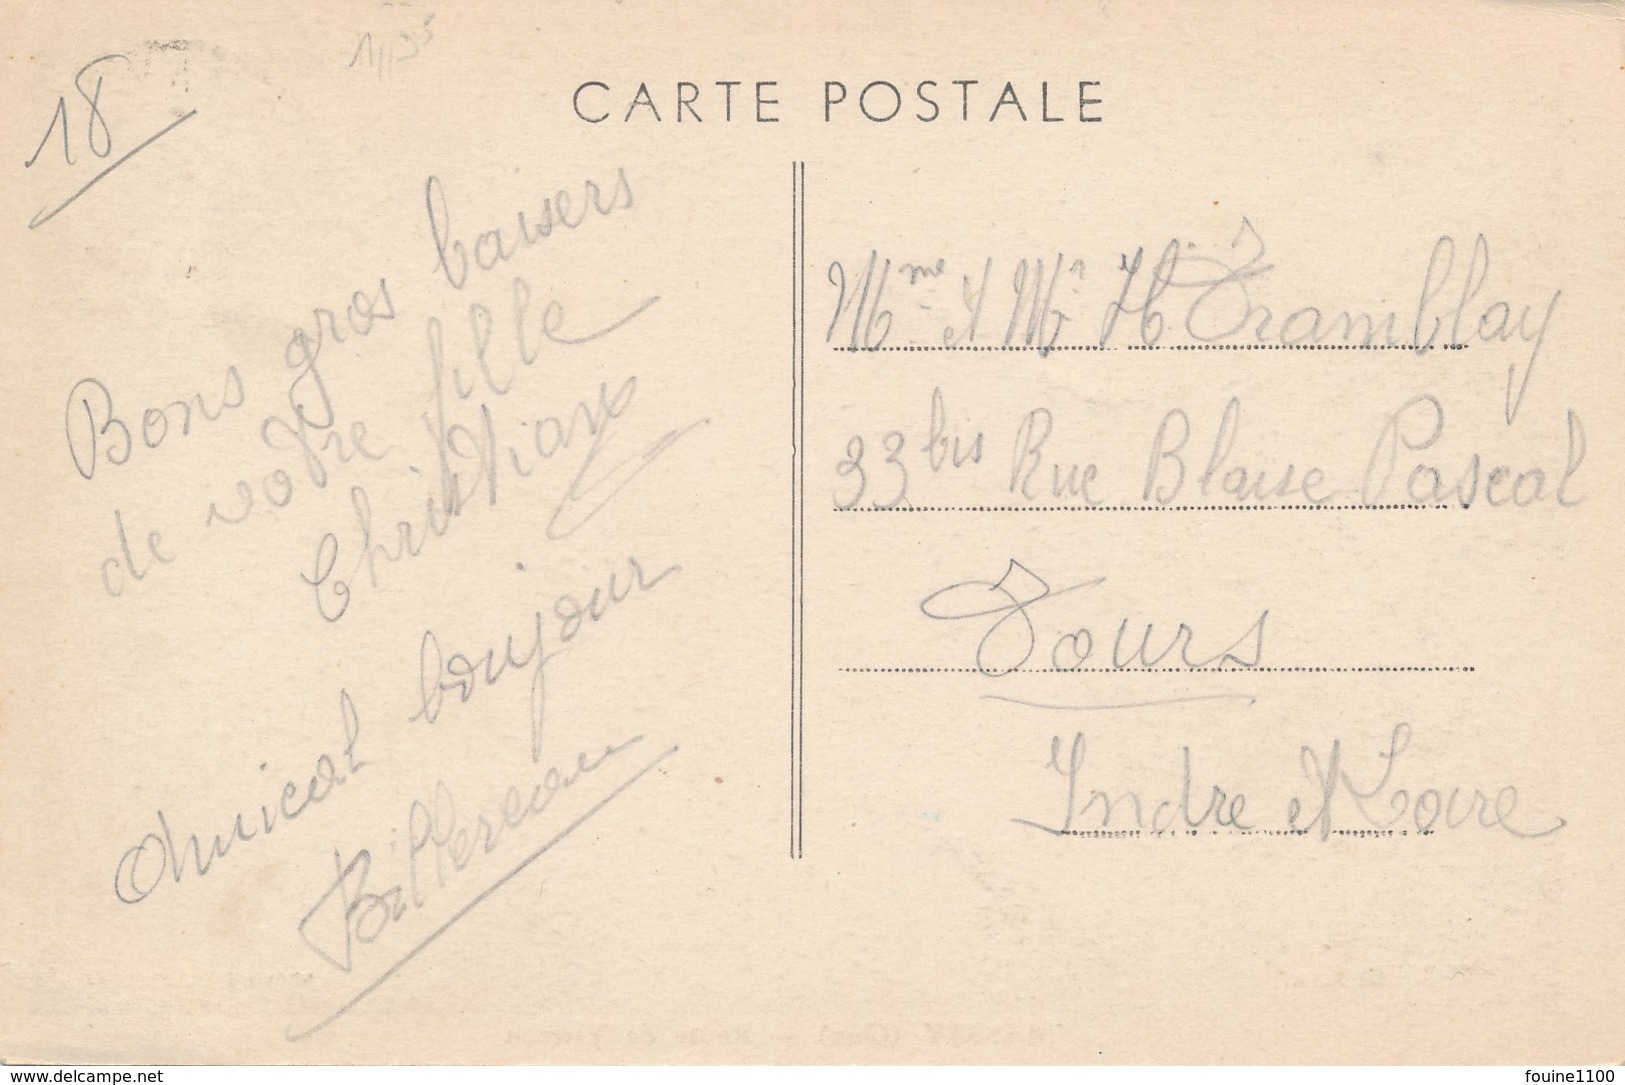 CARTE POSTALE
18
Bons gros baisers
de votre fille
Christiane
Amical bonjour
Billereau
Mme et Mr H Tramblay
33 bis Rue Blaise Pascal
Tours
Indre et Loire
www.delcampe.net
fouine1100